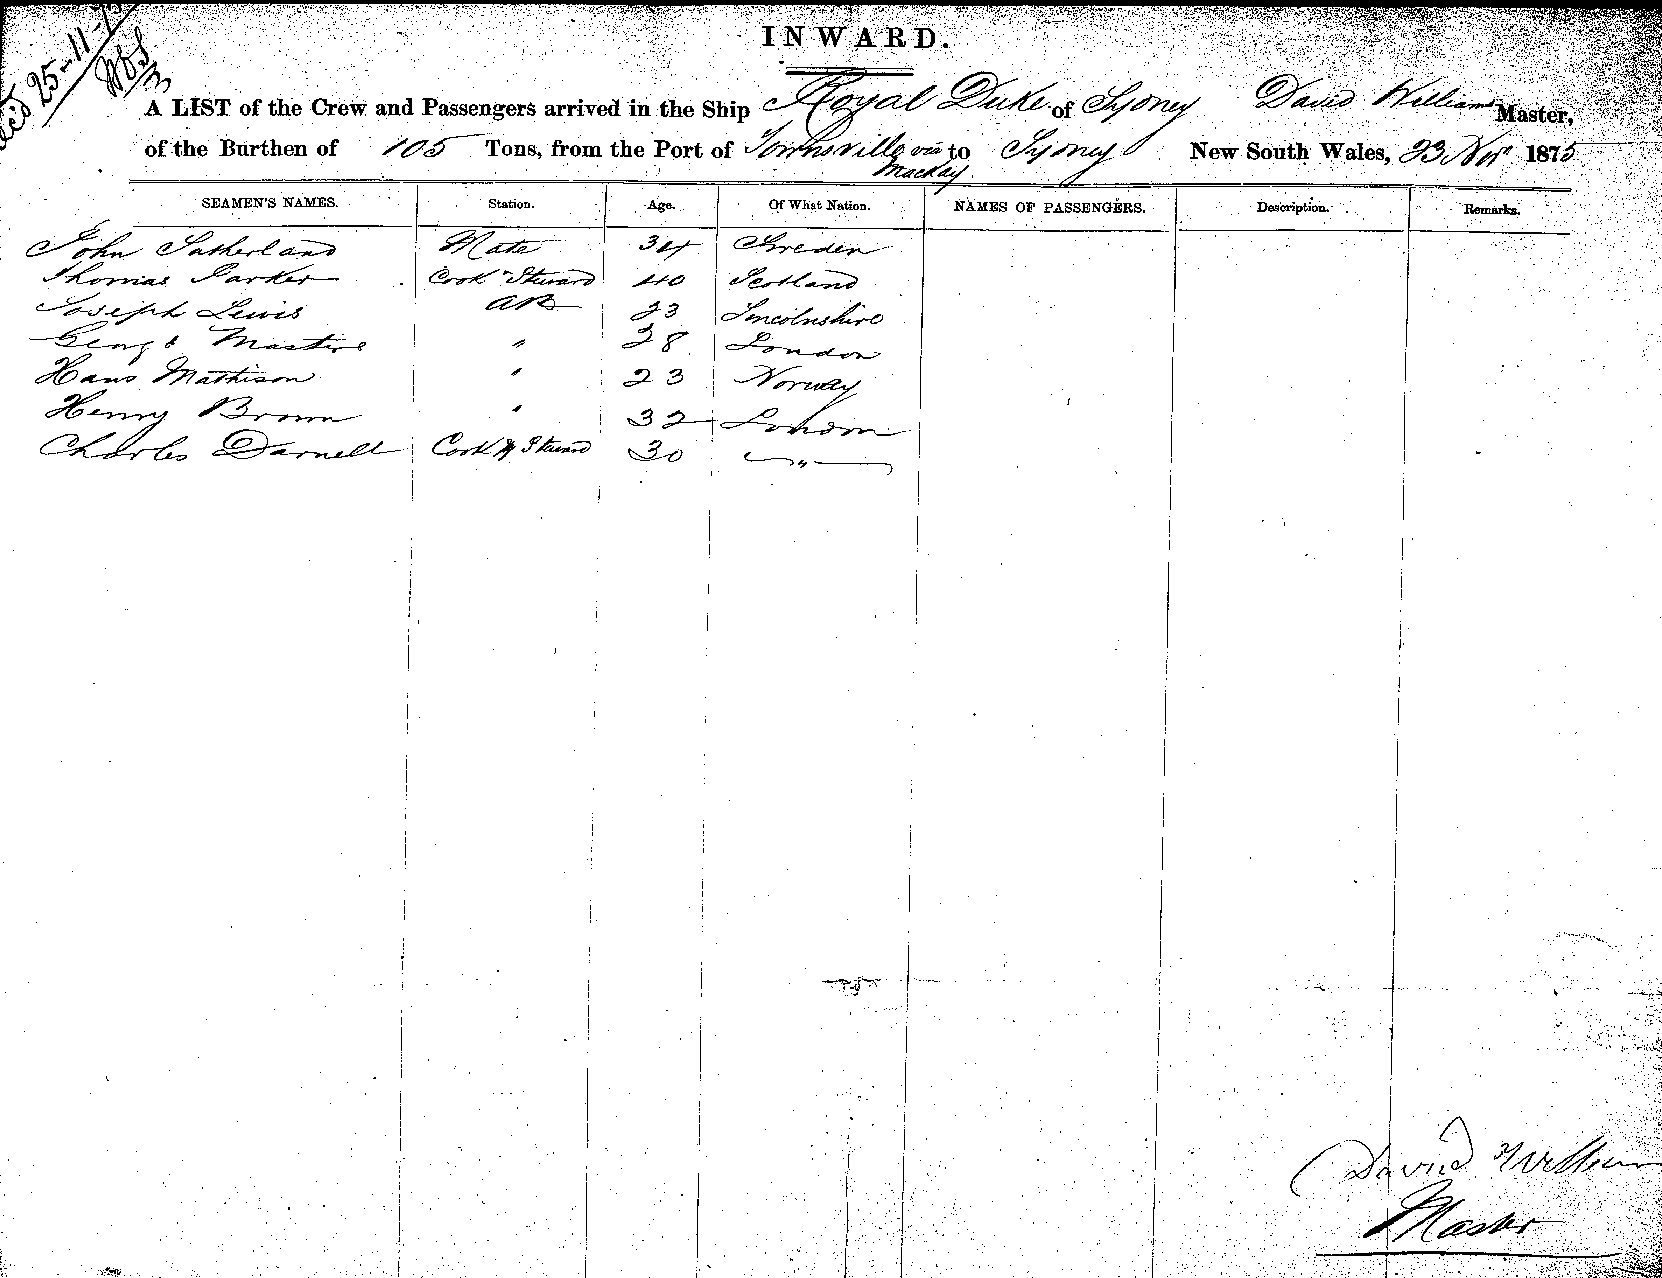 25-11-75
INWARD.
A LIST of the Crew and Passengers arrived in the Ship Royal Duke of Sydney David Williams Master,
of the Burthen of 105 Tons, from the Port of Townsville via to Sydney New South Wales, 23 Novr 1875
Mackay
SEAMEN'S NAMES. Station. Age. Of What Nation. NAMES OF PASSENGERS. Description. Remarks.
John Sutherland Mate 34 Sweden
Thomas Parker Cook & Steward 40 Scotland
Joseph Lewis AB 23 Lincolnshire
Masters " 28 London
Hans Mathison " 23 Norway
Henry Brown " 32 London
Charles Darnell Cook & Steward 30 "
David Williams
Master